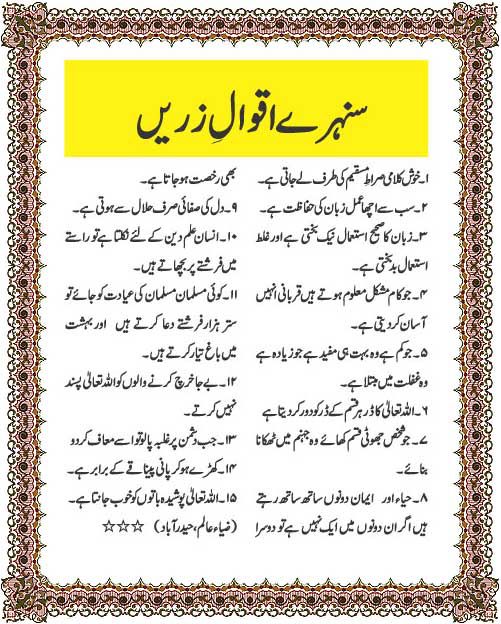 سنہرے اقوالِ زریں
۱۔ خوش کلامی صراط مستقیم کی طرف لے جاتی ہے۔
۲۔ سب سے اچھا عمل زبان کی حفاظت ہے۔
۳۔ زبان کا صحیح استعمال نیک بختی ہے اور غلط
استعمال بدبختی ہے۔
۴۔ جو کام مشکل معلوم ہوتے ہیں قربانی انہیں
آسان کر دیتی ہے۔
۵۔ جو کم ہے وہ بہت ہی مفید ہے جو زیادہ ہے
وہ غفلت میں مبتلا ہے۔
۶۔ اللہ تعالیٰ کا ڈر ہر قسم کے ڈر کو دور کر دیتا ہے
۷۔ جو شخص جھوٹی قسم کھائے وہ جہنم میں ٹھکانا
بنائے۔
۸۔ حیاء اور ایمان دونوں ساتھ ساتھ رہتے
ہیں اگر ان دونوں میں ایک نہیں ہے تو دوسرا
بھی رخصت ہو جاتا ہے۔
۹۔ دل کی صفائی صرف حلال سے ہوتی ہے۔
۱۰۔ انسان علم دین کے لئے نکلتا ہے تو راستے
میں فرشتے پر بچھاتے ہیں۔
۱۱۔ کوئی مسلمان مسلمان کی عیادت کو جائے تو
ستر ہزار فرشتے دعا کرتے ہیں اور بہشت
میں باغ تیار کرتے ہیں۔
۱۲۔ بے جا خرچ کرنے والوں کو اللہ تعالیٰ پسند
نہیں کرتے۔
۱۳۔ جب دشمن پر غلبہ پالو تو اسے معاف کر دو
۱۴۔ کھڑے ہو کر پانی پینا قے کے برابر ہے۔
۱۵۔ اللہ تعالیٰ پوشیدہ باتوں کو خوب جانتا ہے۔
(ضیاء عالم، حیدرآباد) ☆☆☆